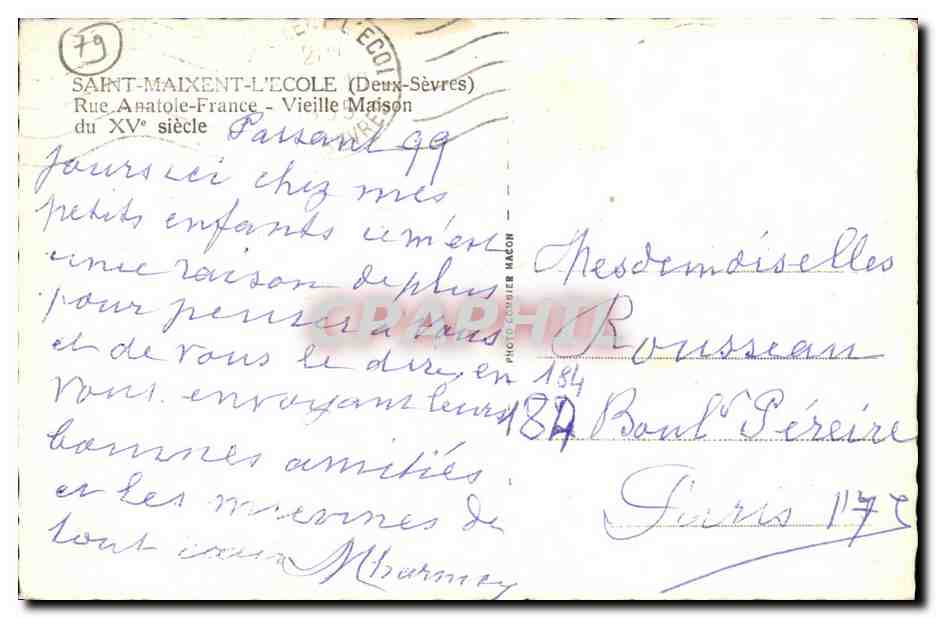 79
SAINT-MAIXENT-L'ECOLE (Deux-Sèvres)
Rue Anatole-France - Vieille Maison
du XVe siècle
Passant 99
jours ici chez mes
petits enfants ce m'est
une raison de plus
pour penser à vous
et de vous le dire, en
vous envoyant leurs
bonnes amitiés
et les miennes de
tout cœur
PHOTO COMBIER MACON
CPAPHIL
Mesdemoiselles
Rousseau
184
184 Boulv Péreire
Paris 17e